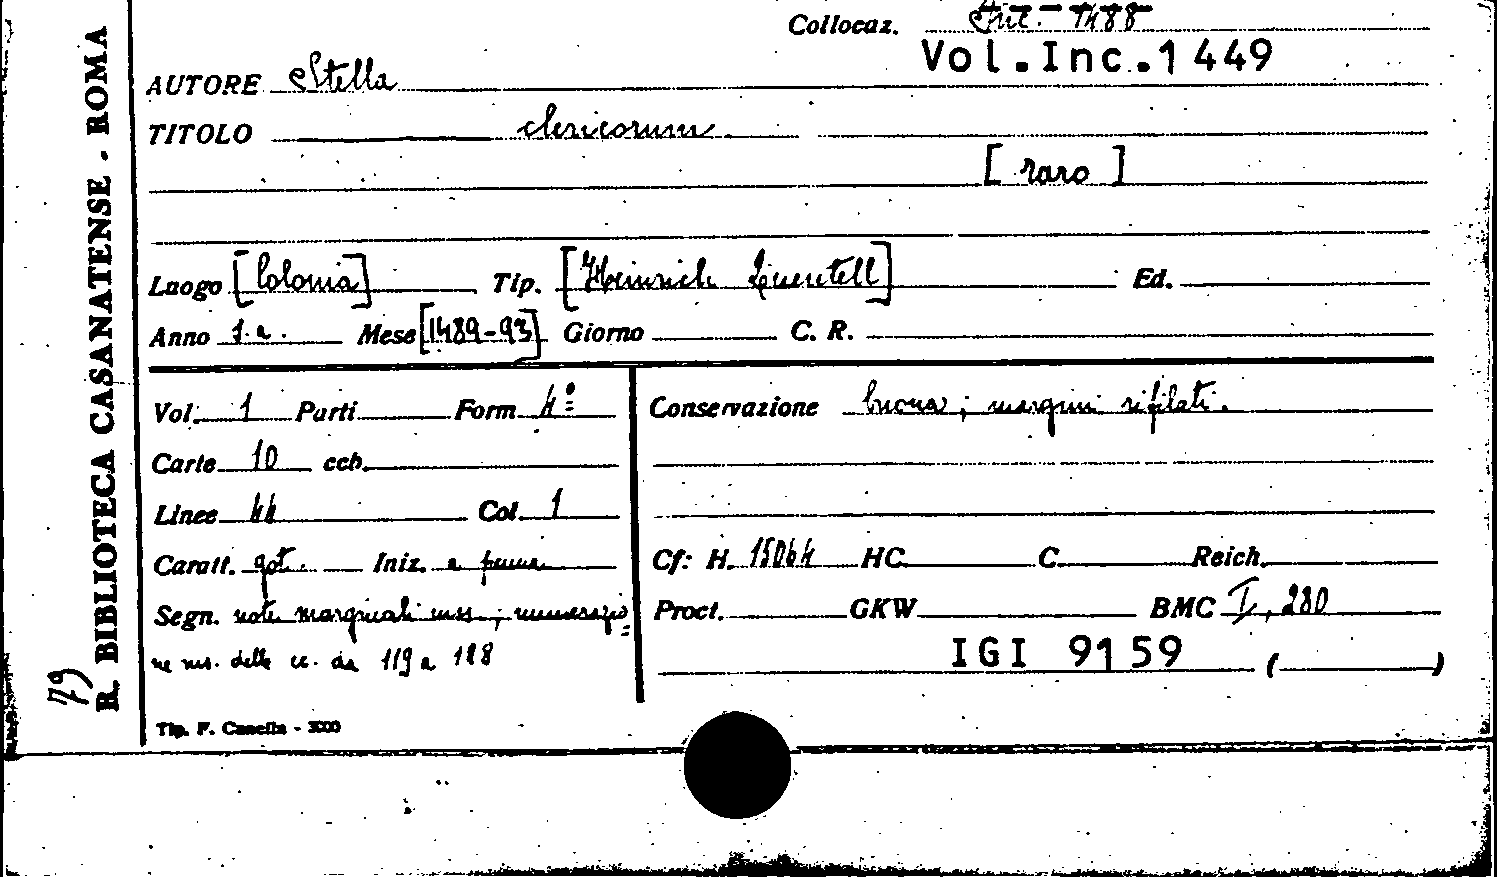 Collocaz. Inc. 1488
Vol.Inc.1449
AUTORE Stella
TITOLO clericorum
[raro]
Luogo [Colonia] Tip. [Heinrich Quentell] Ed.
Anno s.a. Mese [1489-93] Giorno C. R.
Vol. 1 Parti Form. 4º
Carte 10 ccb.
Linee 44 Col. 1
Caratt. got. Iniz. a penna
Segn. note marginali mss; numerazio=
ne ms. delle cc. da 119 a 128
Conservazione buona; margini rifilati.
Cf: H. 15064 HC. C. Reich.
Proct. GKW BMC I, 280
IGI 9159 ( )
Tip. F. Canella - 3000
R. BIBLIOTECA CASANATENSE - ROMA
79